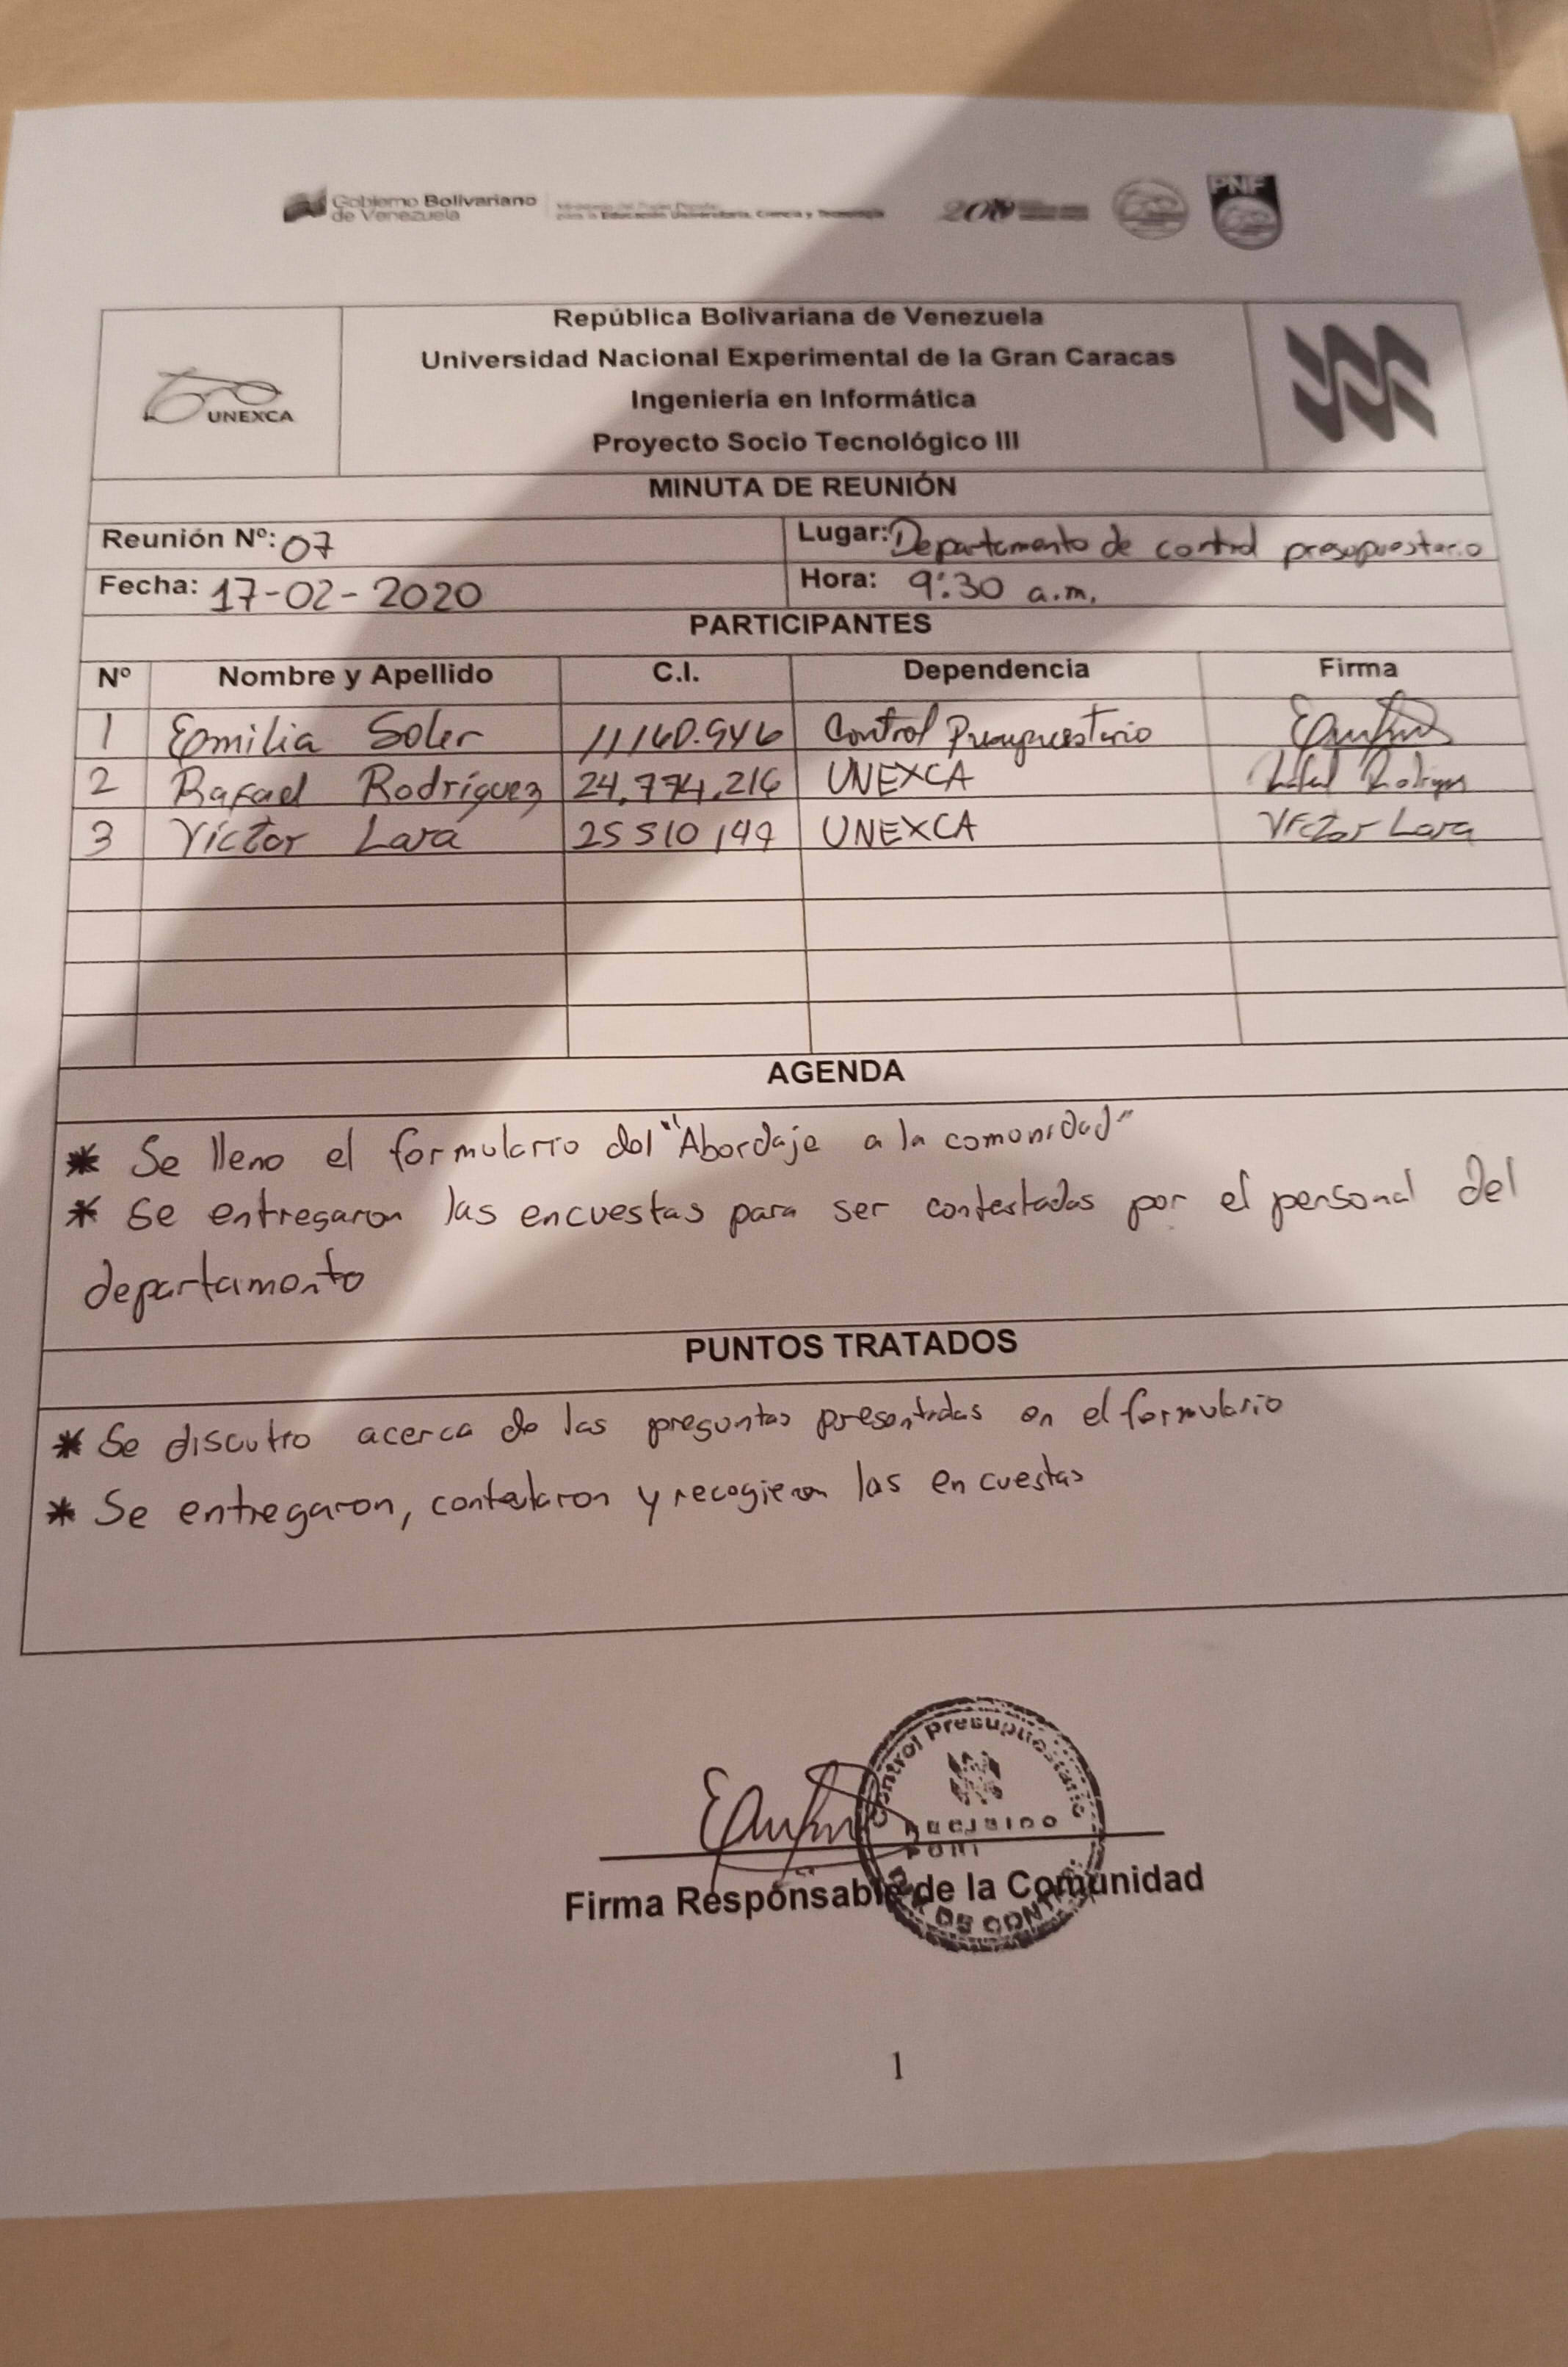 Gobierno Bolivariano
de Venezuela
para la Educación Universitaria, Ciencia y Tecnología
200
PNF
República Bolivariana de Venezuela
Universidad Nacional Experimental de la Gran Caracas
UNEXCA
Ingeniería en Informática
Proyecto Socio Tecnológico III
MINUTA DE REUNIÓN
Reunión Nº: 07 Lugar: Departamento de control presupuestario
Fecha: 17-02-2020 Hora: 9:30 a.m.
PARTICIPANTES
Nº Nombre y Apellido C.I. Dependencia Firma
1 Emilia Soler 11160.946 Control Presupuestario
2 Rafael Rodríguez 24.774.216 UNEXCA Rafael Rodriguez
3 Víctor Lara 25510149 UNEXCA Víctor Lara
AGENDA
* Se lleno el formulario del "Abordaje a la comunidad"
* Se entregaron las encuestas para ser contestadas por el personal del
departamento
PUNTOS TRATADOS
* Se discutio acerca de las preguntas presentadas en el formulario
* Se entregaron, contestaron y recogieron las encuestas
Control Presupuestario
Firma Responsable de la Comunidad
1